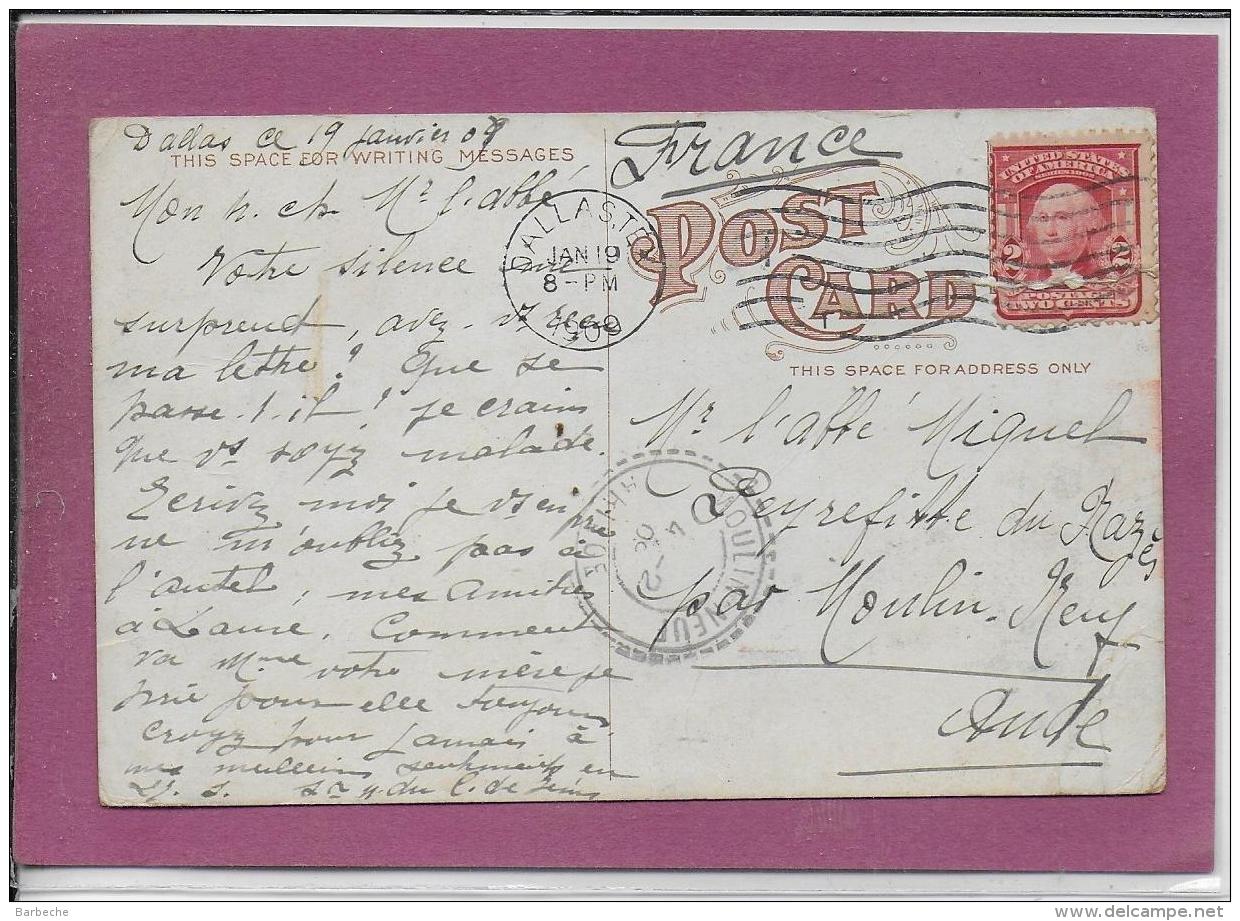 Dallas ce 19 janvier 09
THIS SPACE FOR WRITING MESSAGES
Mon h. ch Mr l'abbé
Votre silence me
surprend, avez-vs reçu
ma lettre? Que se
passe-t-il? je crains
que vs soyez malade.
Ecrivez moi je vs en prie
ne m'oubliez pas à
l'autel, mes Amitiés
à Laure. Comment
va Mme votre mère je
prie pour elle toujours
croyez pour jamais à
mes meilleurs sentiments en
J. S. Sr M. du C. de Jésus
France
POST
CARD
THIS SPACE FOR ADDRESS ONLY
DALLAS, TEX
JAN 19
8-PM
1909
UNITED STATES
OF AMERICA
SERIES 1902
2 2
POSTAGE
TWO CENTS
Mr l'abbé Miguel
Peyrefitte du Razès
par Moulin-Neuf
Aude
MOULIN-NEUF
ARIÈGE
Barbeche
delcampe.net